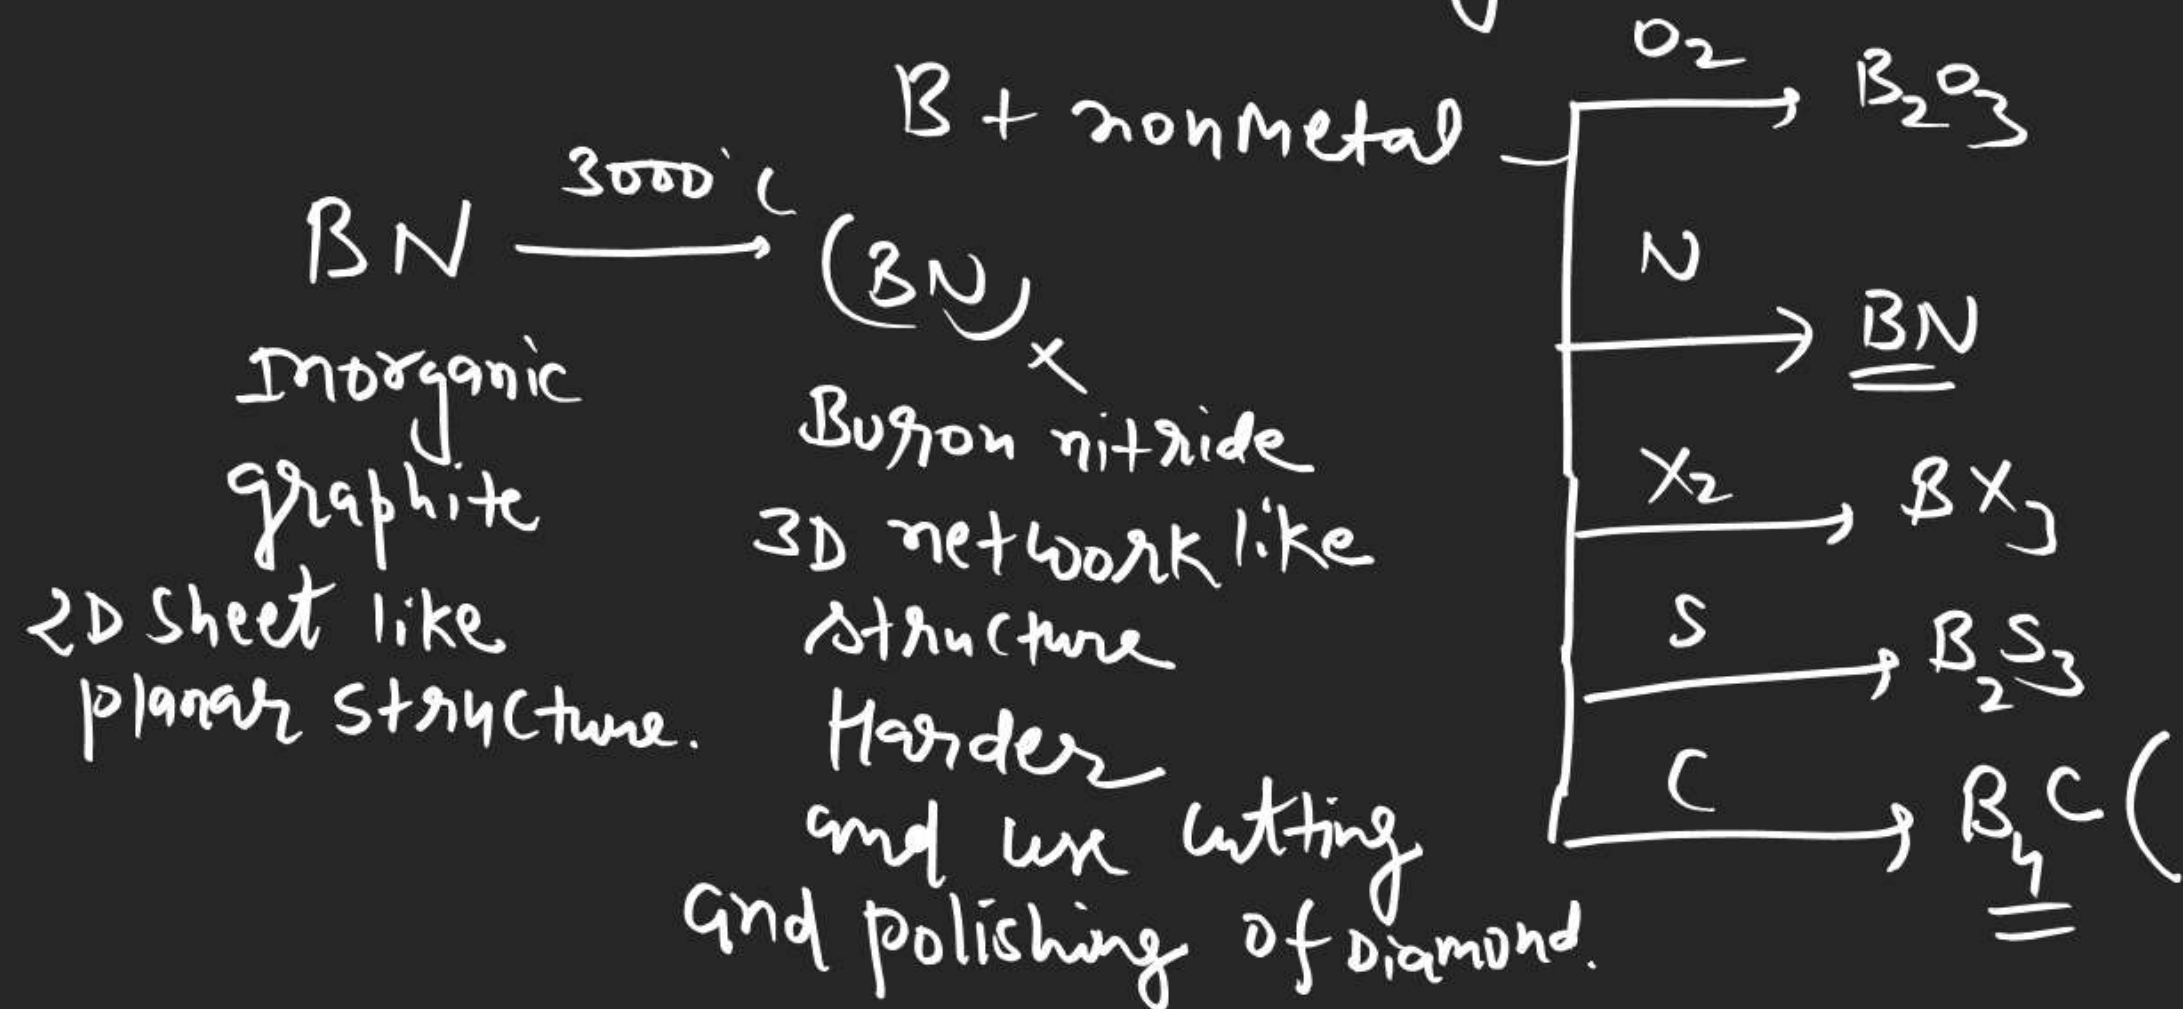 B + nonmetal
O₂ → B₂O₃
N → BN
X₂ → BX₃
S → B₂S₃
C → B₄C (
BN 3000°C → (BN)x
Inorganic
graphite
2D sheet like
planar structure.
Buron nitride
3D network like
structure
Harder
and use cutting
and polishing of Diamond.